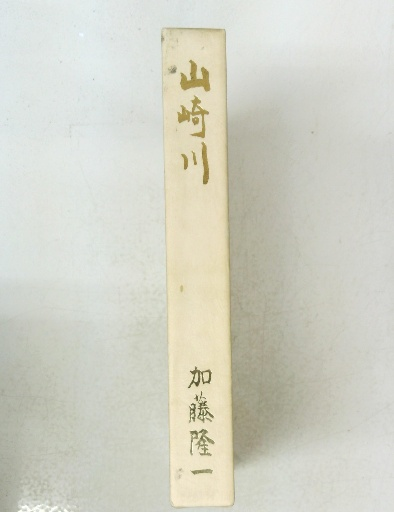 山崎川
加藤隆一